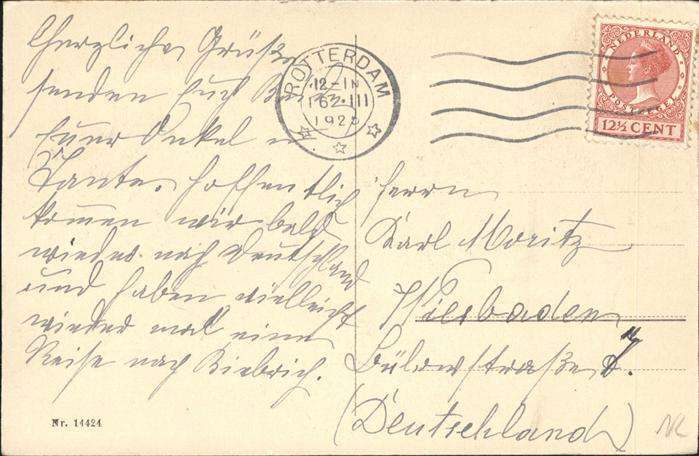 Herzliche Grüße
senden Euch
Euer Onkel u.
Tante. Hoffentlich
kommen wir bald
wieder nach Deutschland
und haben vielleicht
wieder mal eine
Reise nach Biebrich.
Nr. 14424
ROTTERDAM
12-1N
16.III
1925
NEDERLAND
POSTZEGEL
12½ CENT
Herrn
Karl Moritz
Wiesbaden
Bülowstraße
(Deutschland)